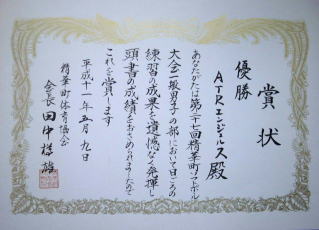 賞状
優勝
ATRエンジェルス殿
あなたがたは第二十七回精華町ソフトボール
大会一般男子の部において日ごろの
練習の成果を遺憾なく発揮し
頭書の成績をおさめられましたので
これを賞します
平成十一年五月九日
精華町体育協会
会長 田中様雄